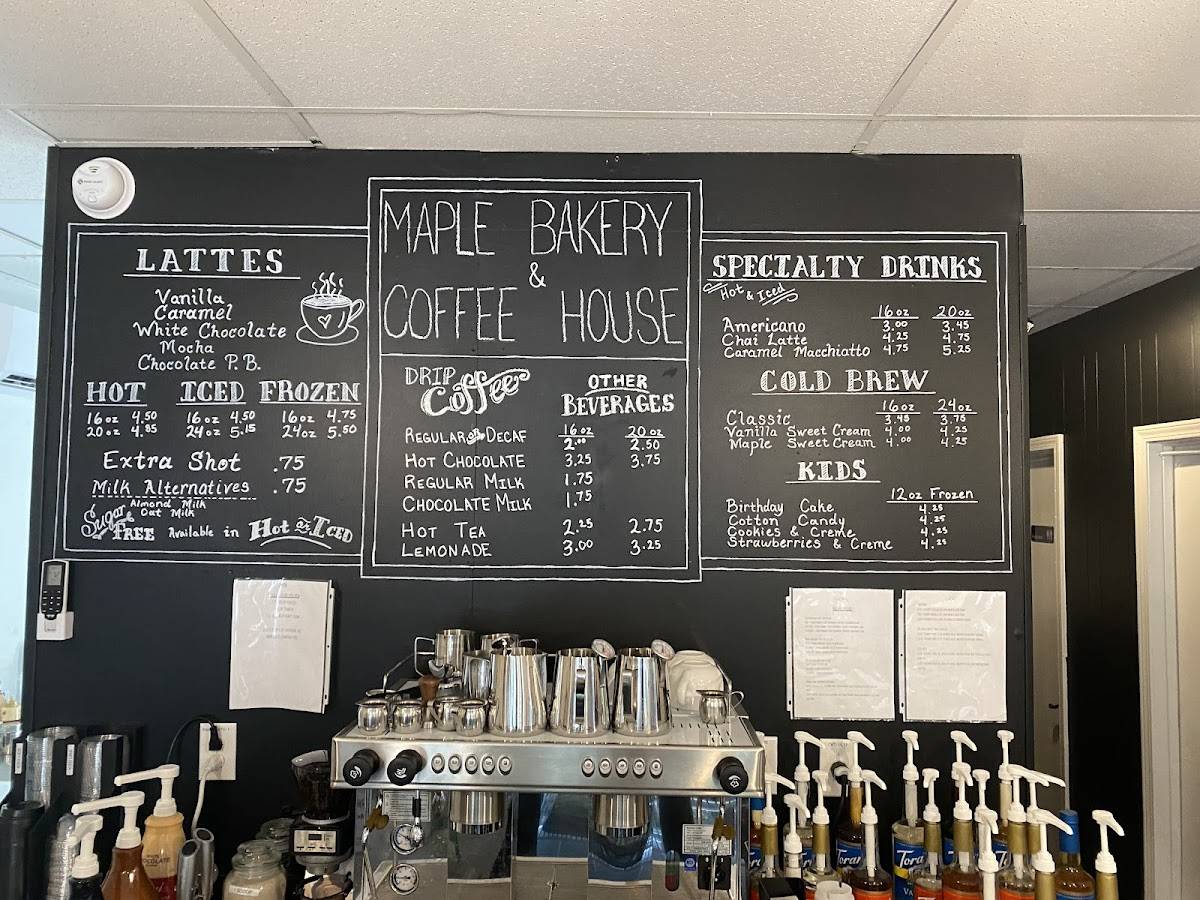 LATTES
Vanilla
Caramel
White Chocolate
Mocha
Chocolate P.B.
HOT ICED FROZEN
16oz 4.50 16oz 4.50 16oz 4.75
20oz 4.85 24oz 5.15 24oz 5.50
Extra Shot .75
Milk Alternatives .75
Almond Milk
Oat Milk
Sugar FREE Available in Hot or Iced
MAPLE BAKERY
&
COFFEE HOUSE
DRIP Coffee
OTHER
BEVERAGES
16oz 20oz
REGULAR or DECAF 2.00 2.50
HOT CHOCOLATE 3.25 3.75
REGULAR MILK 1.75
CHOCOLATE MILK 1.75
HOT TEA 2.25 2.75
LEMONADE 3.00 3.25
SPECIALTY DRINKS
Hot & Iced
16oz 20oz
Americano 3.00 3.45
Chai Latte 4.25 4.75
Caramel Macchiatto 4.75 5.25
COLD BREW
16oz 24oz
Classic 3.45 3.75
Vanilla Sweet Cream 4.00 4.25
Maple Sweet Cream 4.00 4.25
KIDS
12oz Frozen
Birthday Cake 4.25
Cotton Candy 4.25
Cookies & Creme 4.25
Strawberries & Creme 4.25
Torani